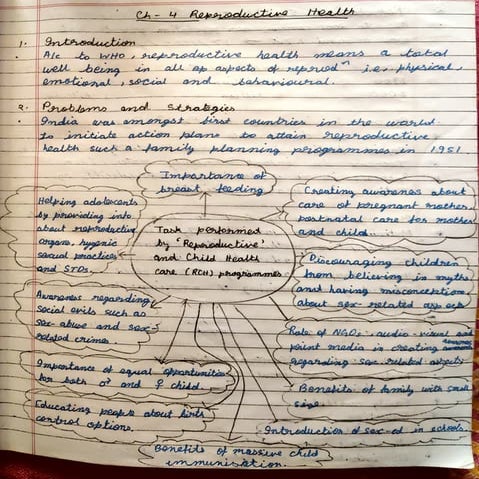 Ch - 4 Reproductive Health
1. Introduction
• A/c to WHO, reproductive health means a total
well being in all ep aspects of reprodⁿ i.e., physical,
emotional, social and behavioural.
2. Problems and Strategies
• India was amongst first countries in the world
to initiate action plans to attain reproductive
health such a family planning programmes in 1951
Importance of
breast feeding
Helping adolescents
by providing info
about reproductive
organs, hygenic
sexual practices
and STDs.
Task performed
by 'Reproductive'
and Child Health
care (RCH) programmes
Creating awareness about
care of pregnant mother,
postnatal care for mother
and child.
Discouraging children
from believing in myths
and having misconception
about sex-related
Awareness regarding
social evils such as
sex-abuse and sex-
related crimes.
Role of NGOs, audio-visual and
print media in creating awareness
regarding sex related aspects
Importance of equal opportunities
for both ♂ and ♀ child.
Benefits of family with small
size
Educating people about birth
control options.
Introduction of sex-ed in schools.
Benefits of massive child
immunisation.